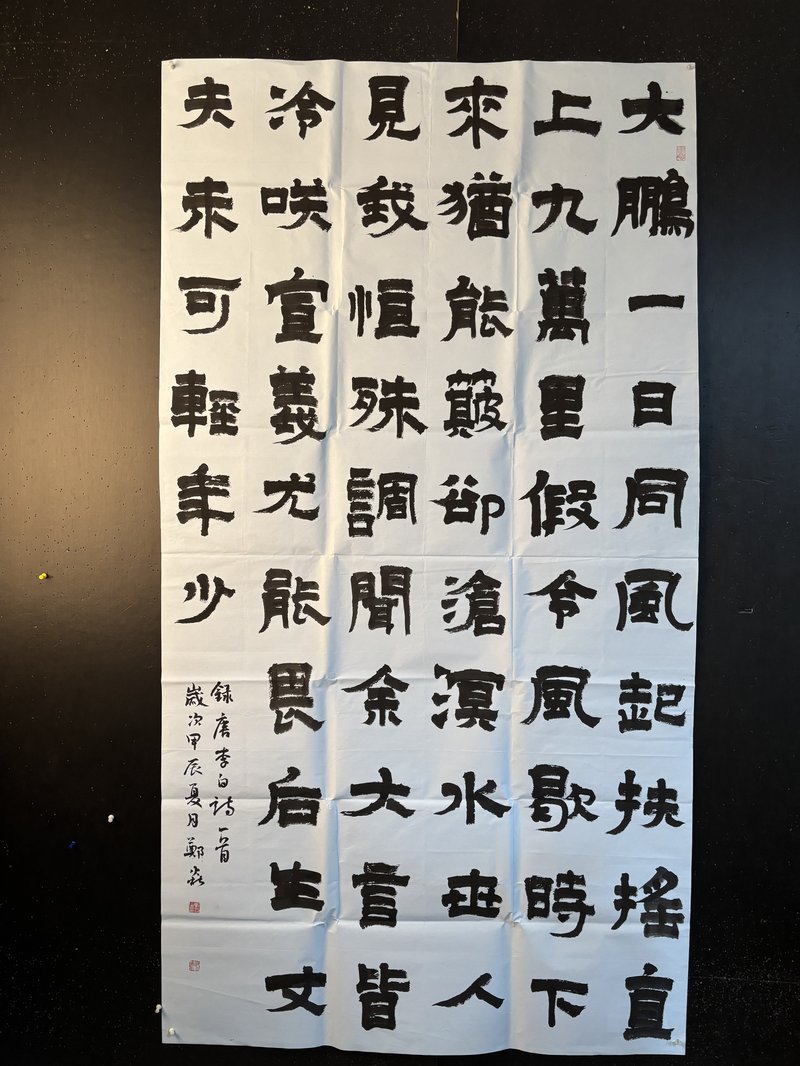 大鵬一日同風起扶摇直
上九萬里假令風歇時下
來猶能簸卻滄溟水世人
見我恒殊調聞余大言皆
冷咲宣義尤能畏后生丈
夫未可輕年少
録唐李白詩一首
歲次甲辰夏月鄭焱